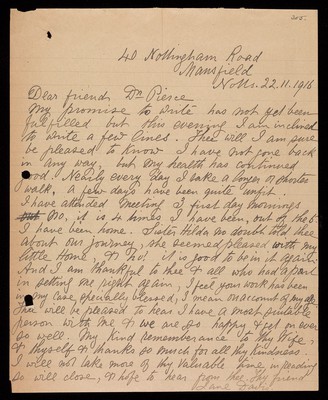 205.
40 Nottingham Road
Mansfield
Notts. 22.11.1916
Dear friend Dr Pierce
My promise to write has not yet been
fulfilled but this evening I am inclined
to write a few lines. Thee will I am sure
be pleased to know I have not gone back
in any way, but my health has continued
good. Nearly every day I take a longer or shorter
walk, a few days have been quite unfit.
I have attended Meeting 3 first day mornings
No, it is 4 times I have been, out of the 5
I have been home. Sister Hilda no doubt told thee
about our journey, she seemed pleased with my
little home, & oh! it is good to be in it again.
And I am thankful to thee & all who had a part
in setting me right again, I feel your work has been
in my case specially blessed, I mean on account of my age
Thee will be pleased to hear I have a most suitable
person with me & we are so happy & get on ever
so well. My kind rememberance to thy Wife,
& thyself & thanks so much for all thy kindness.
I will not take more of thy valuable time in reading
so will close, & hope to hear from thee thy friend
Jane